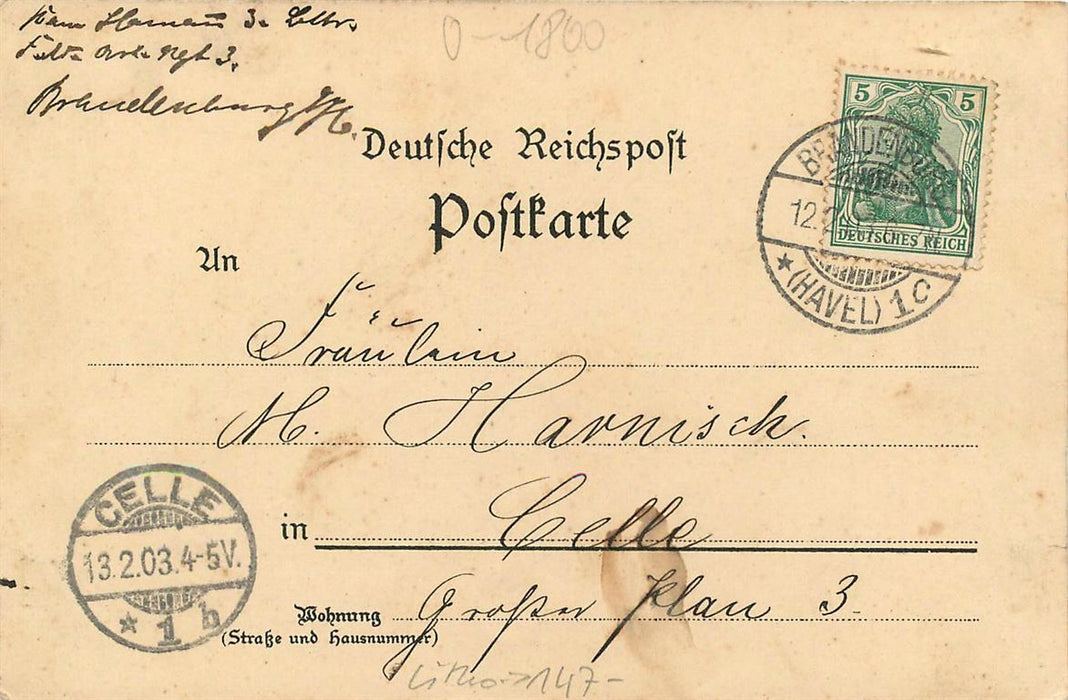 3.
Feld Art. Rgt 3.
Brandenburg a/H.
0-1800
Deutſche Reichspoſt
Poſtkarte
5 5
DEUTSCHES REICH
BRANDENBURG
12.2.
* (HAVEL) 1c
An
Fräulein
M. Harnisch.
in Celle
Wohnung Großer Plan 3.
(Straße und Hausnummer)
CELLE
13.2.03.4-5V.
* 1 b
Litho 147-